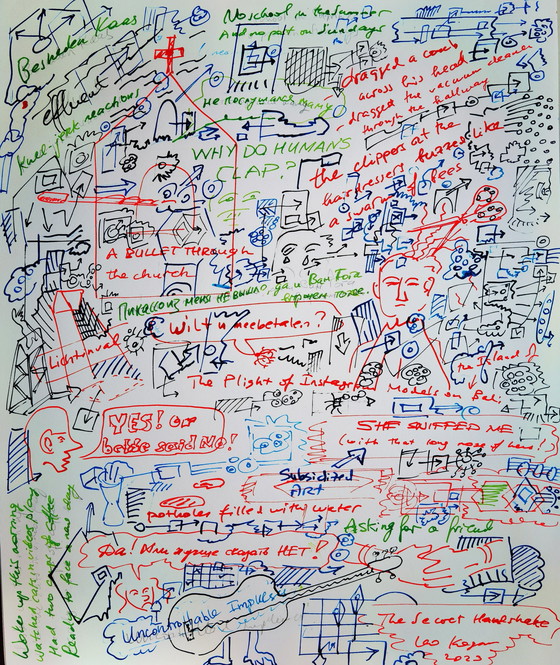 Bescheiden Kaas
effluent
Knee-jerk reactions
No school in the summer
And no part on Sundays
не послушались маму
WHY DO HUMANS
CLAP?
dragged a comb
across his head
dragged the vacuum cleaner
through the hallway
the clippers at the
hairdressers buzzes like
a swarm of bees
A BULLET THROUGH
the church
Пикассо из меня не вышло, да и Ван Гога
Lichtinval
Wilt u meebetalen?
The Plight of Instagram Models on Bali,
the Island
YES! Or
better said No!
SHE SNIFFED ME
(with that long nose of hers!)
Subsidized
Art
potholes filled with water
Asking for a friend
Woke up this morning
Watched cats in ideas play
Had two cups of coffee
Ready to face the day
Да! Или лучше сказать НЕТ!
Uncontrollable Impulses
The Secret Handshake
Leo Kogan
2023